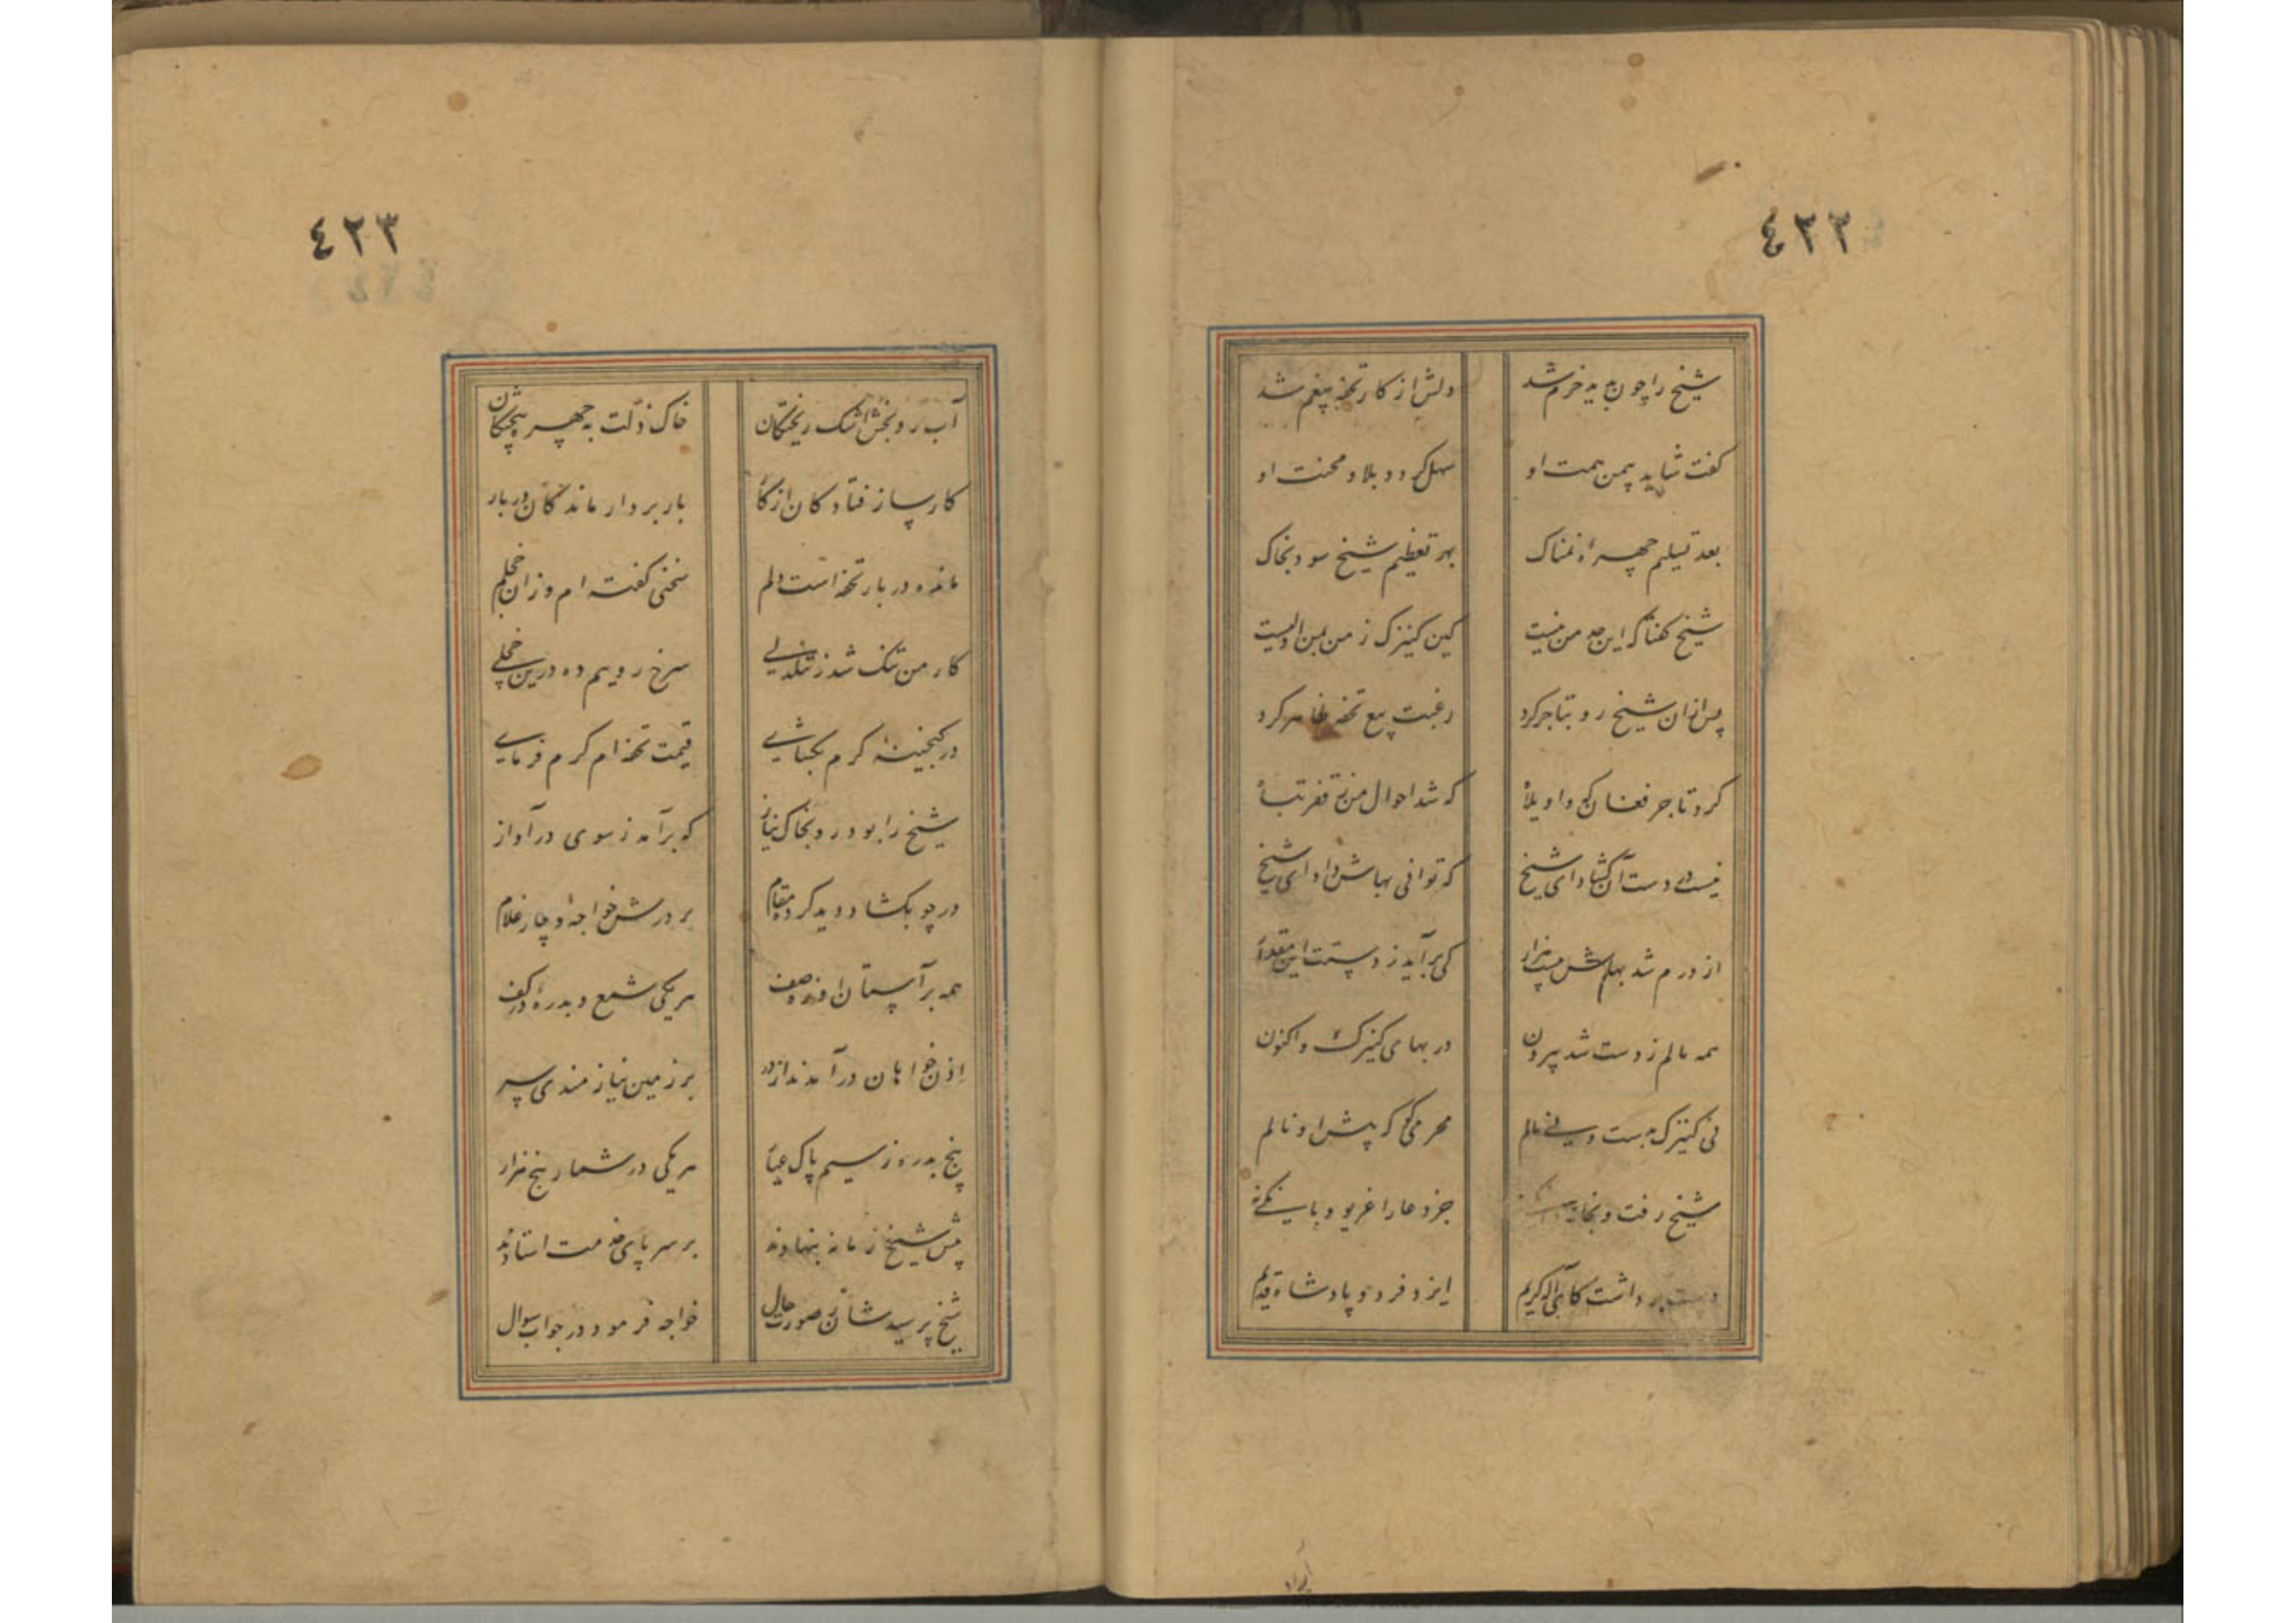 ٤٢٢
شیخ را چون بدید خرم شد دلش از کار تحفه بیغم شد
گفت شاید بیمن همت او سهل گردد بلا و محنت او
بعد تسلیم چهرهٔ نمناک بهر تعظیم شیخ سود بخاک
شیخ گفتا که این حد من نیست کین کنیزک ز من بمن اولیست
پس ازان شیخ رو بتاجر کرد رغبت بیع تحفه ظاهر کرد
کرد تاجر فغان که واویلا که شد احوال من ز فقر تباه
نیست در دست آن گشاد ای شیخ که توانی بهاش داد ای شیخ
از درم شد بهاش بیست هزار کی برآید ز دستت این مقدار
همه مالم ز دست شد بیرون در بهای کنیزک و اکنون
نی کنیزک بدست و نی مالم محرمی کو که پیش او نالم
شیخ رفت و بخانه جز دعا را غریو و بانگ نه
دست برداشت کای اله کریم ایزد فرد و پادشاه قدیم
٤٢٣
آب رو بخش اشک ریختگان خاک ذلت به چهره بیختگان
کارساز فتادگان از کار باربردار ماندگان در بار
مانده در بار تحفه است دلم سخنی گفته ام وزان خجلم
کار من تنگ شد ز تنگدلی سرخ رویم ده درین خجلی
در گنجینهٔ کرم بگشای قیمت تحفه ام کرم فرمای
شیخ را بود رو بخاک نیاز که برآمد ز سوی در آواز
در چو بگشاد دید کرده مقام بر درش خواجهٔ و چار غلام
همه بر آستان او زده صف هر یکی شمع و بدرهٔ در کف
اذن خواهان درآمدند از در بر زمین نیازمندی سر
پنج بدره ز سیم پاک عیار هر یکی در شمار پنج هزار
پیش شیخ زمانه بنهادند بر سر پای خدمت استادند
شیخ پرسیدشان ز صورت حال خواجه فرمود در جواب سوال